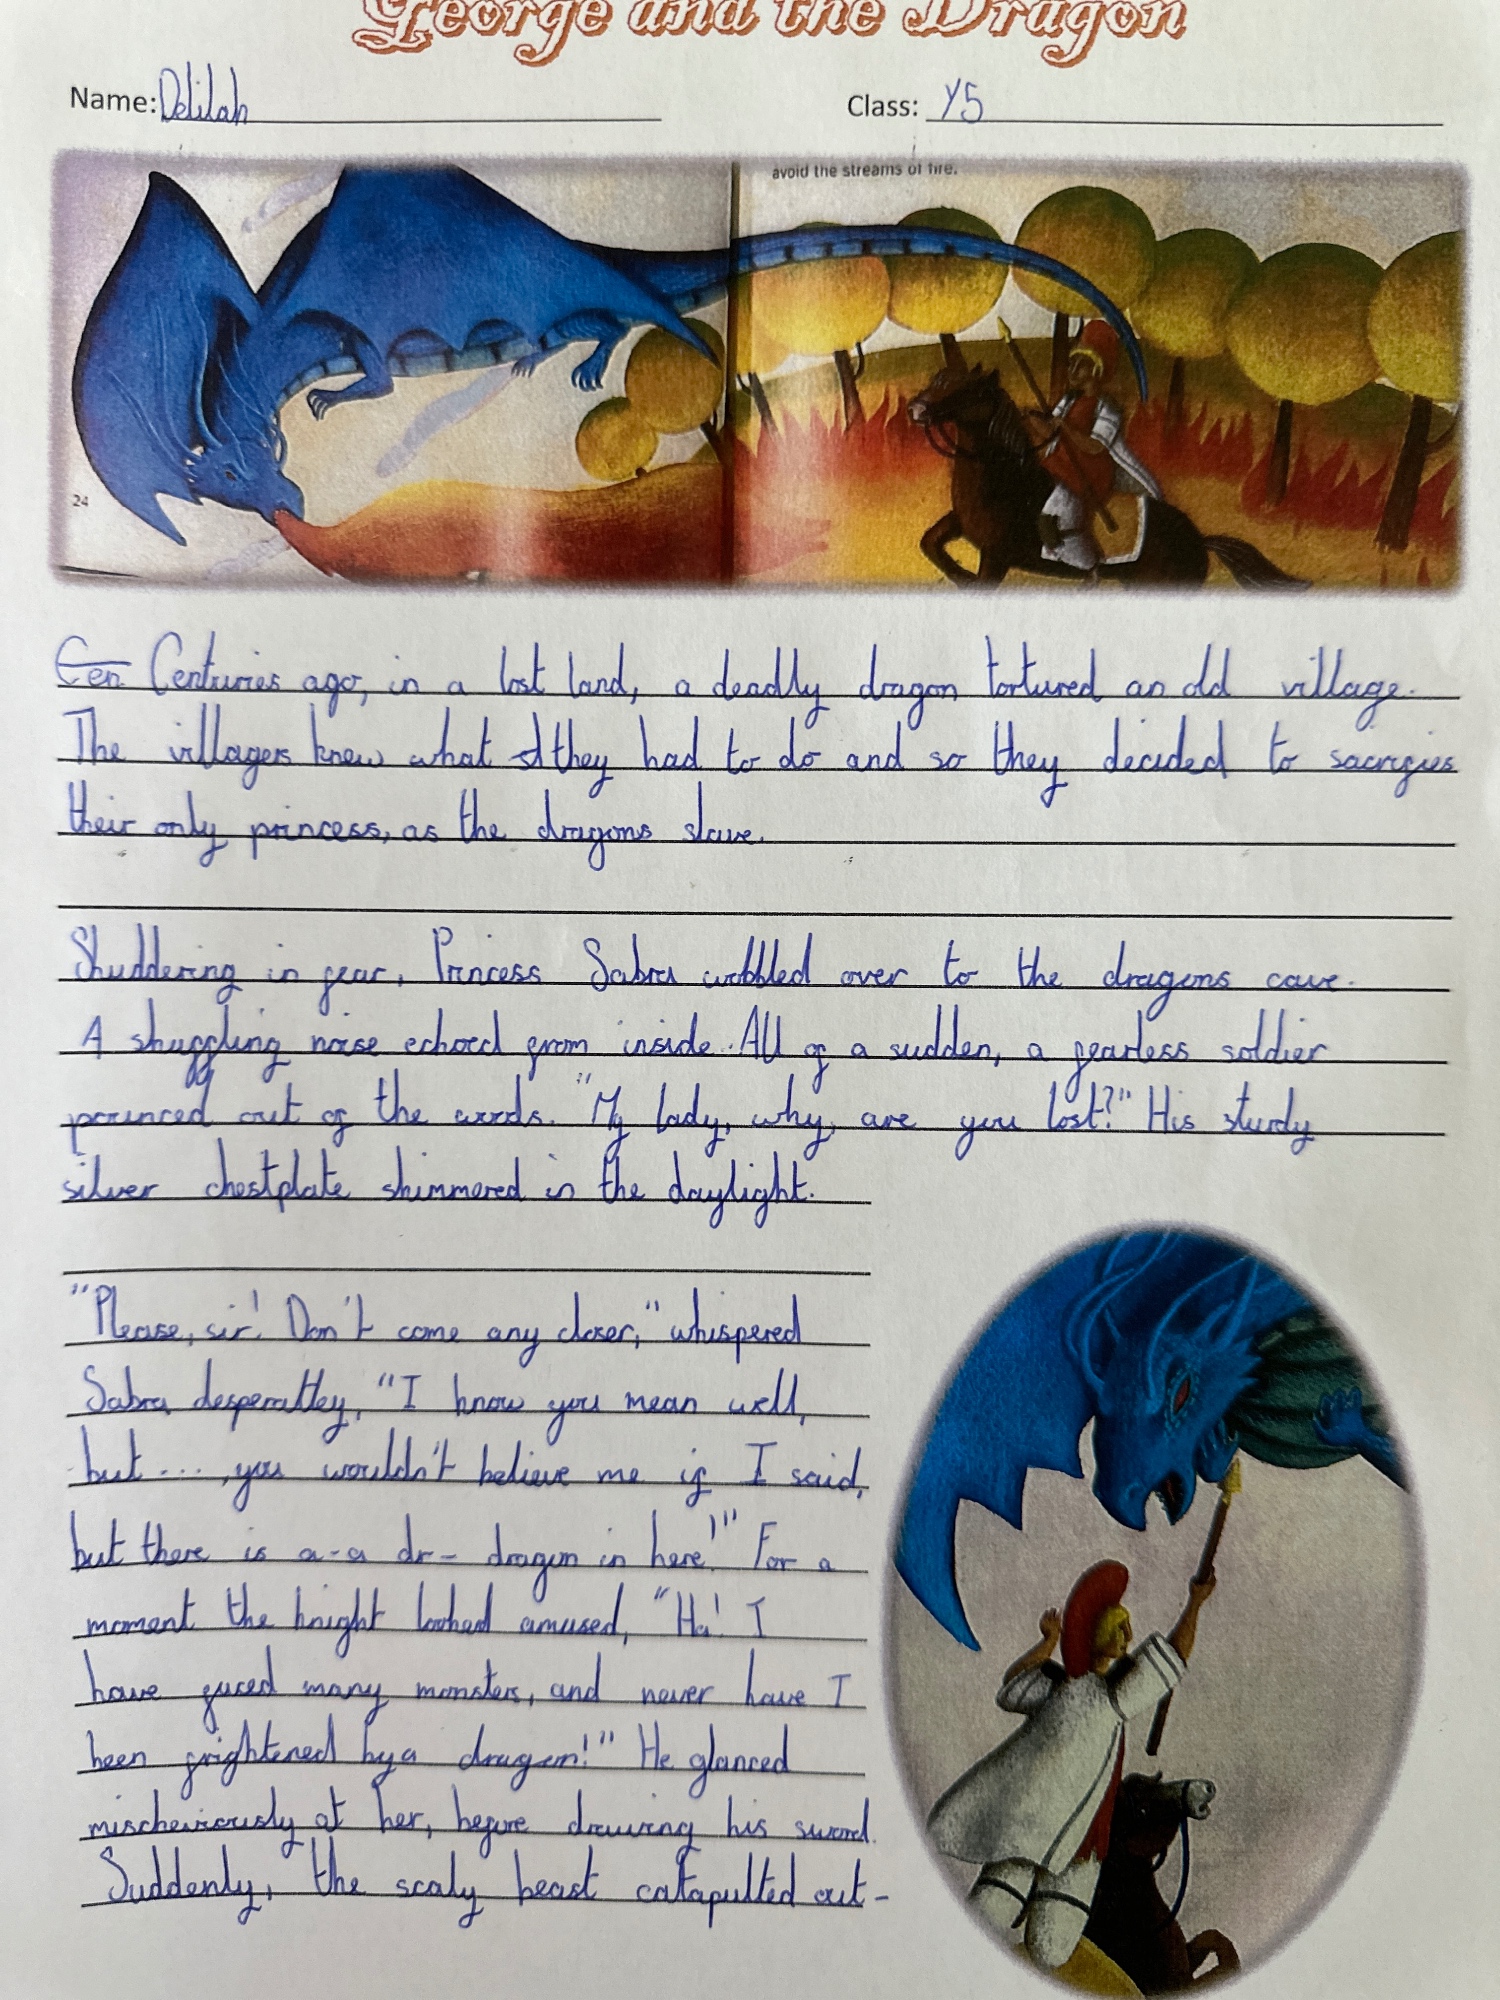 George and the Dragon
Name: Delilah Class: Y5
avoid the streams of fire.
24
Cen Centuries ago, in a lost land, a deadly dragon tortured an old village.
The villagers knew what they had to do and so they decided to sacrifies
their only princess, as the dragons slave.
Shuddering in fear, Princess Sabra wobbled over to the dragons cave.
A shuffling noise echoed from inside. All of a sudden, a fearless soldier
pounced out of the woods. "My lady, why, are you lost?" His sturdy
silver chestplate shimmered in the daylight.
"Please, sir! Don't come any closer," whispered
Sabra desperatley, "I know you mean well,
but ... , you wouldn't believe me if I said,
but there is a-a dr- dragon in here!" For a
moment the knight looked amused, "Ha! I
have faced many monsters, and never have I
been frightened by a dragon!" He glanced
mischeviously at her, before drawing his sword.
Suddenly, the scaly beast catapulted out-